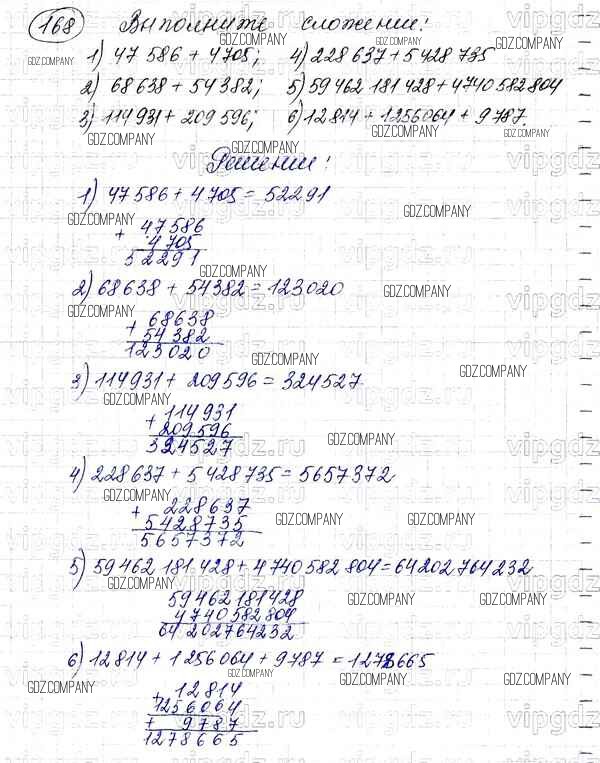 168 Выполните сложение:
1) 47 586 + 4705; 4) 228 637 + 5 428 735
2) 68 638 + 54 382; 5) 59 462 181 428 + 4740 582 804
3) 114 931 + 209 596; 6) 12 814 + 1256064 + 9 787.
Решение:
1) 47 586 + 4 705 = 52291
+ 47586
4705
52291
2) 68638 + 54 382 = 123020
+ 68638
54382
123020
3) 114931 + 209 596 = 324527
+ 114931
209596
324527
4) 228 637 + 5 428 735 = 5657372
+ 228637
5428735
5657372
5) 59 462 181 428 + 4 740 582 804 = 64202764232
59462181428
4740582804
64202764232
6) 12 814 + 1 256 064 + 9 787 = 1278665
+ 12814
1256064
+ 9787
1278665
GDZ.COMPANY
vipgdz.ru